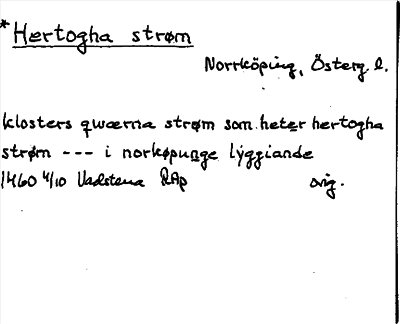 * Hertogha strøm
Norrköping, Österg. l.
klosters qwærna strøm som heter hertogha
strøm --- i norkøpunge lyggiande
1460 4/10 Vadstena RAp orig.